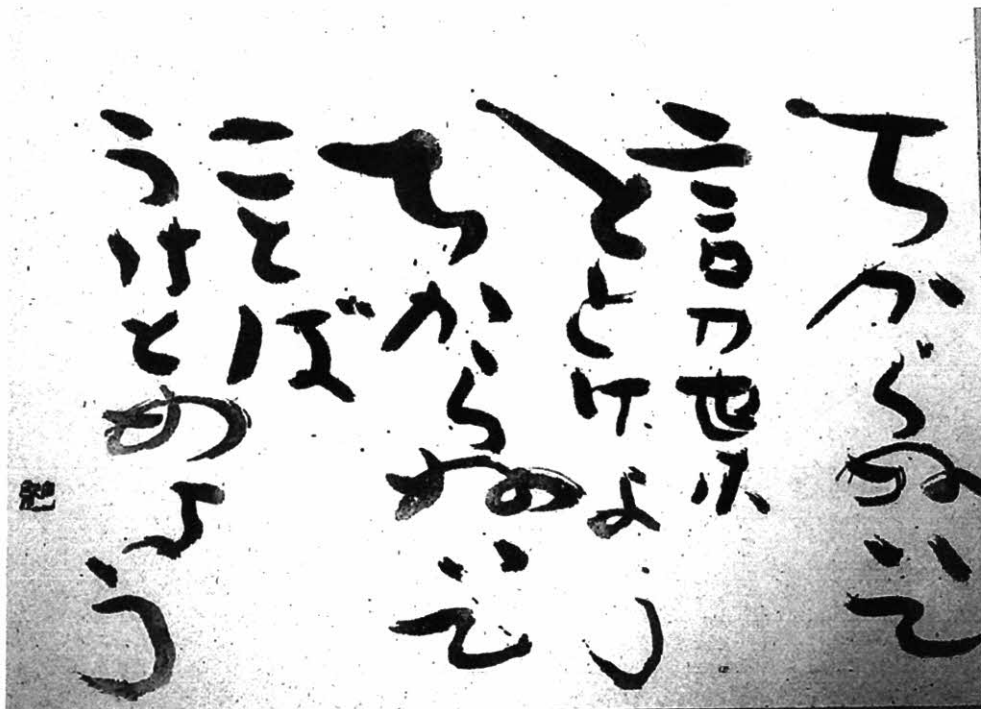 ちからぬいて
言乃葉
ととけよう
ちからぬいて
ことば
うけとめよう